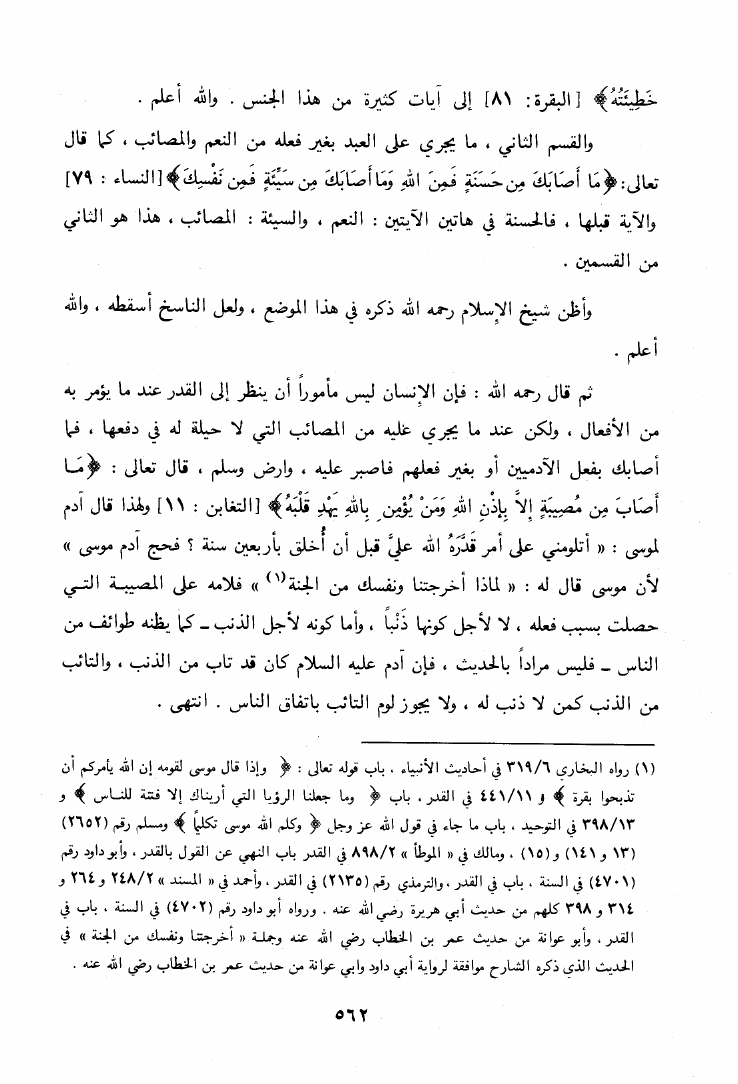 خَطِيئَتُهُ﴾ [البقرة: ٨١] إلى آيات كثيرة من هذا الجنس . والله أعلم .
والقسم الثاني ، ما يجري على العبد بغير فعله من النعم والمصائب ، كما قال
تعالى: ﴿مَا أَصَابَكَ مِن حَسَنَةٍ فَمِنَ اللهِ وَمَا أَصَابَكَ مِن سَيِّئَةٍ فَمِن نَفْسِكَ﴾ [النساء : ٧٩]
والآية قبلها ، فالحسنة في هاتين الآيتين : النعم ، والسيئة : المصائب ، هذا هو الثاني
من القسمين .
وأظن شيخ الإسلام رحمه الله ذكره في هذا الموضع ، ولعل الناسخ أسقطه ، والله
أعلم .
ثم قال رحمه الله : فإن الإنسان ليس مأموراً أن ينظر إلى القدر عند ما يؤمر به
من الأفعال ، ولكن عند ما يجري عليه من المصائب التي لا حيلة له في دفعها ، فما
أصابك بفعل الآدميين أو بغير فعلهم فاصبر عليه ، وارض وسلم ، قال تعالى : ﴿مَـا
أَصَابَ مِن مُصِيبَةٍ إِلاَّ بِإِذْنِ اللهِ وَمَنْ يُؤْمِن بِاللهِ يَهْدِ قَلْبَهُ﴾ [التغابن : ١١] ولهذا قال آدم
لموسى : « أتلومني على أمر قَدَّرَهُ الله عليَّ قبل أن أُخلق بأربعين سنة ؟ فحج آدم موسى »
لأن موسى قال له : « لماذا أخرجتنا ونفسك من الجنة(١) » فلامه على المصيبـة التـي
حصلت بسبب فعله ، لا لأجل كونها ذَنْباً ، وأما كونه لأجل الذنب ـ كما يظنه طوائف من
الناس ـ فليس مراداً بالحديث ، فإن آدم عليه السلام كان قد تاب من الذنب ، والتائب
من الذنب كمن لا ذنب له ، ولا يجوز لوم التائب باتفاق الناس . انتهى .
(١) رواه البخاري ٣١٩/٦ في أحاديث الأنبياء ، باب قوله تعالى : ﴿ وإذا قال موسى لقومه إن الله يأمركم أن
تذبحوا بقرة ﴾ و ٤٤١/١١ في القدر ، باب ﴿ وما جعلنا الرؤيا التي أريناك إلا فتنة للنـاس ﴾ و
٣٩٨/١٣ في التوحيد ، باب ما جاء في قول الله عز وجل ﴿ وكلم الله موسى تكليماً ﴾ ومسلم رقم (٢٦٥٢)
(١٣ و ١٤١) و (١٥) ، ومالك في « الموطأ » ٨٩٨/٢ في القدر باب النهي عن القول بالقدر ، وأبو داود رقم
(٤٧٠١) في السنة ، باب في القدر ، والترمذي رقم (٢١٣٥) في القدر ، وأحمد في « المسند » ٢٤٨/٢ و ٢٦٤ و
٣١٤ و ٣٩٨ كلهم من حديث أبي هريرة رضي الله عنه . ورواه أبو داود رقم (٤٧٠٢) في السنة ، باب في
القدر ، وأبو عوانة من حديث عمر بن الخطاب رضي الله عنه وجملـة « أخرجتنا ونفسك من الجنة » في
الحديث الذي ذكره الشارح موافقة لرواية أبي داود وابي عوانة من حديث عمر بن الخطاب رضي الله عنه .
٥٦٢